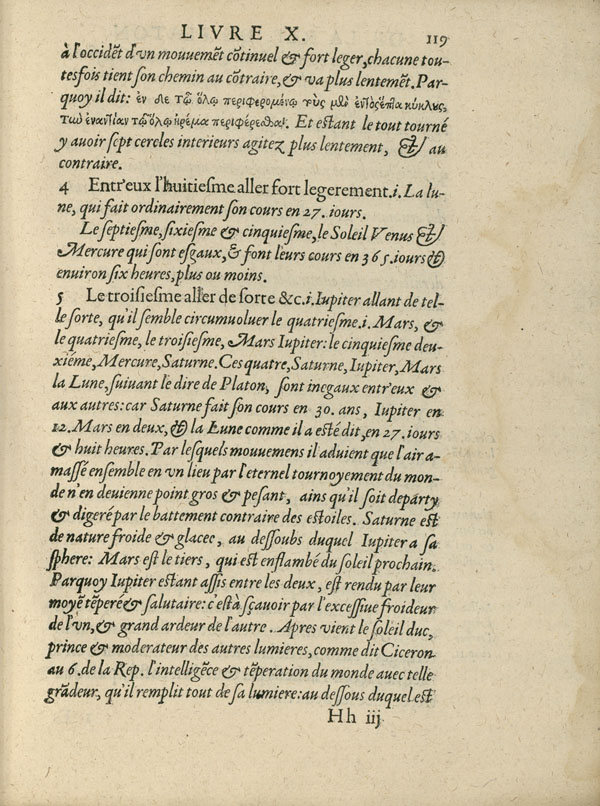 LIVRE X. 119
à l'occidẽt d'vn mouuemẽt cõtinuel & fort leger, chacune tou-
tesfois tient son chemin au cõtraire, & va plus lentemẽt. Par-
quoy il dit: ἐν δὲ τῷ ὅλῳ περιφερομένῳ τοὺς μὲν ἐντὸς ἑπτὰ κύκλους,
τὴν ἐναντίαν τῷ ὅλῳ ἠρέμα περιφέρεσθαι. Et estant le tout tourné
y auoir sept cercles interieurs agitez plus lentement, & au
contraire.
4 Entr'eux l'huitiesme aller fort legerement .i. La lu-
ne, qui fait ordinairement son cours en 27. iours.
Le septiesme, sixiesme & cinquiesme, le Soleil Venus &
Mercure qui sont esgaux, & font leurs cours en 365. iours &
enuiron six heures, plus ou moins.
5 Le troisiesme aller de sorte &c .i. Iupiter allant de tel-
le sorte, qu'il semble circumuoluer le quatriesme .i. Mars, &
le quatriesme, le troisiesme, Mars Iupiter: le cinquiesme deu-
xiéme, Mercure, Saturne. Ces quatre, Saturne, Iupiter, Mars
la Lune, suiuant le dire de Platon, sont inegaux entr'eux &
aux autres: car Saturne fait son cours en 30. ans, Iupiter en
12. Mars en deux, & la Lune comme il a esté dit, en 27. iours
& huit heures. Par lesquels mouuemens il aduient que l'air a-
massé ensemble en vn lieu par l'eternel tournoyement du mon-
de n'en deuienne point gros & pesant, ains qu'il soit departy
& digeré par le battement contraire des estoiles. Saturne est
de nature froide & glacee, au dessoubs duquel Iupiter a sa
sphere: Mars est le tiers, qui est enflambé du soleil prochain.
Parquoy Iupiter estant assis entre les deux, est rendu par leur
moyẽ tẽperé & salutaire: c'est à sçauoir par l'excessiue froideur
de l'vn, & grand ardeur de l'autre. Apres vient le soleil duc,
prince & moderateur des autres lumieres, comme dit Ciceron
au 6. de la Rep. l'intelligẽce & tẽperation du monde auec telle
grãdeur, qu'il remplit tout de sa lumiere: au dessous duquel est
Hh iij